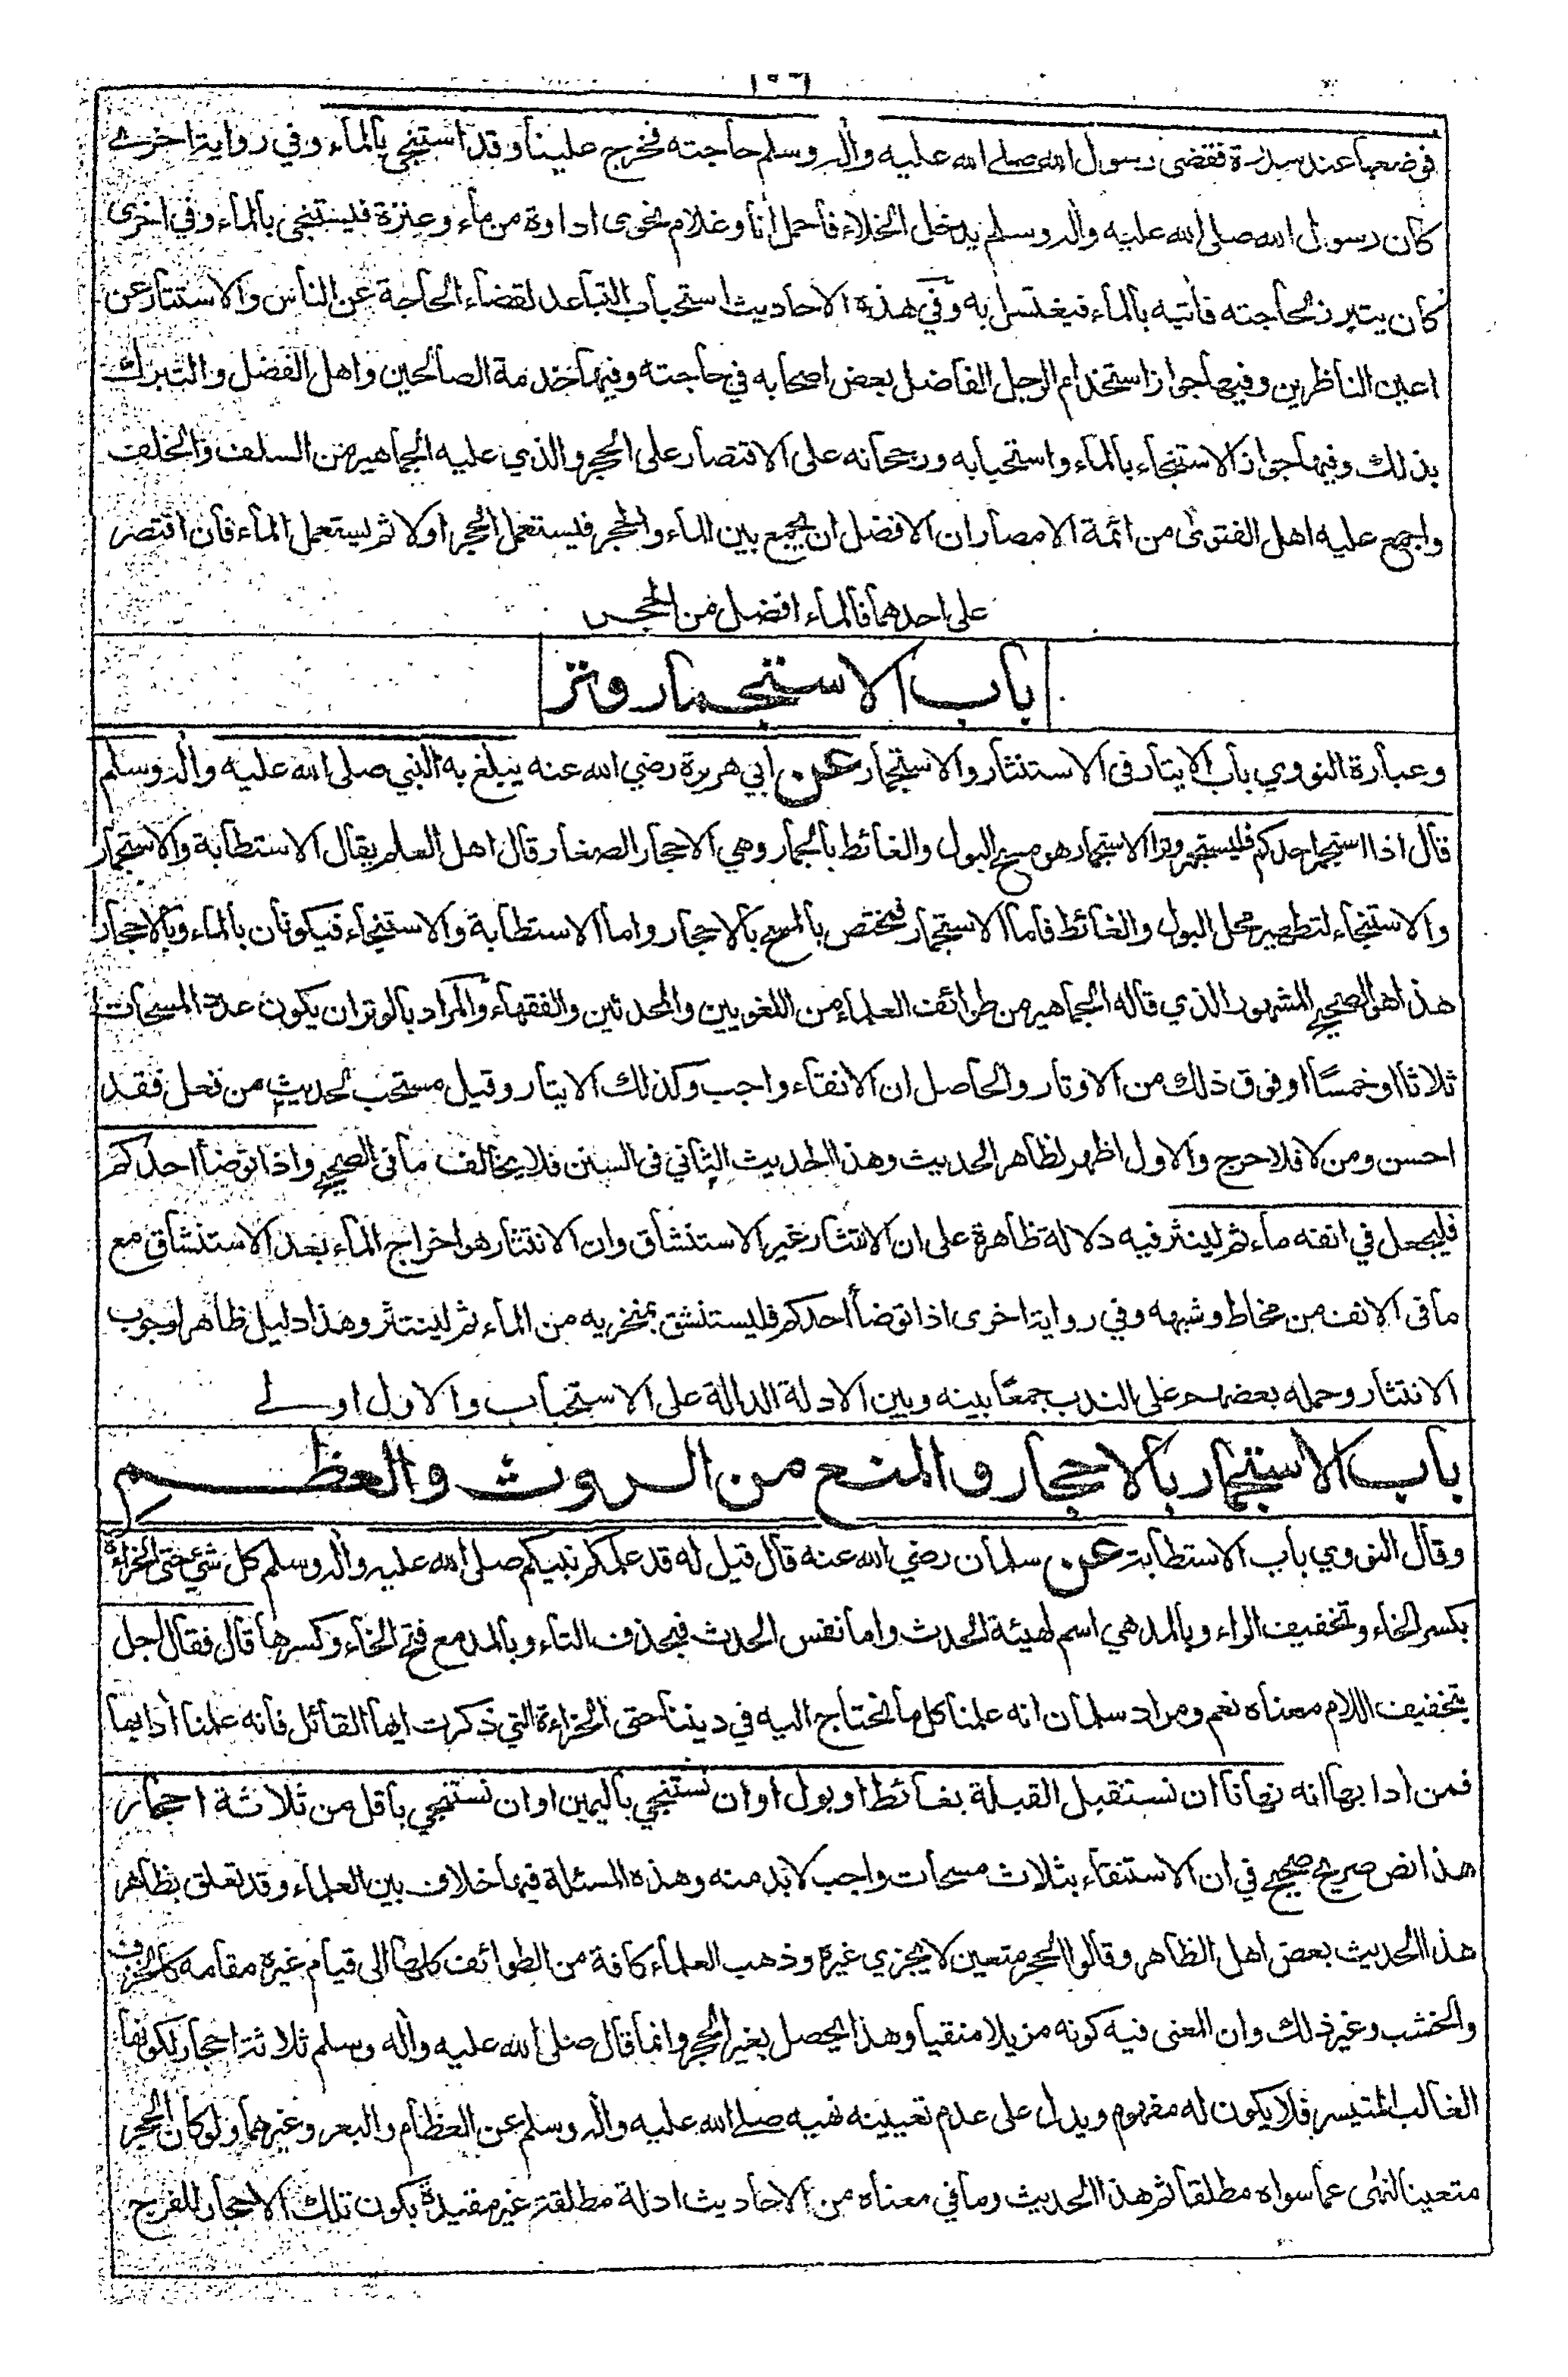 ١٠٦
فوضعها عند سدرة فقضى رسول الله صلى الله عليه واله وسلم حاجته فخرج علينا وقد استنجى بالماء وفي رواية اخرى
كان رسول الله صلى الله عليه واله وسلم يدخل الخلاء فاحمل انا وغلام نحوى اداوة من ماء وعنزة فليستنجى بالماء وفي اخرى
كان يتبرز لحاجته فاتيه بالماء فيغتسل به وفي هذه الاحاديث استحباب التباعد لقضاء الحاجة عن الناس والاستتار عن
اعين الناظرين وفيها جواز استخدام الرجل الفاضل بعض اصحابه في حاجته وفيها خدمة الصالحين واهل الفضل والتبرك
بذلك وفيها جواز الاستنجاء بالماء واستحبابه ورجحانه على الاقتصار على الحجر والذي عليه الجماهير من السلف والخلف
واجمع عليه اهل الفتوى من ائمة الامصار ان الافضل ان يجمع بين الماء والحجر فيستعمل الحجر اولا ثم يستعمل الماء فان اقتصر
على احدهما فالماء افضل من الحجر
باب الاستجمار وتر
وعبارة النووي باب الايتار فى الاستنثار والاستجمار عن ابي هريرة رضي الله عنه يبلغ به النبي صلى الله عليه واله وسلم
قال اذا استجمر احدكم فليستجمر وترا الاستجمار هو مسح البول والغائط بالجمار وهي الاحجار الصغار قال اهل العلم يقال الاستطابة والاستجمار
والاستنجاء لتطهير محل البول والغائط فاما الاستجمار فمختص بالمسح بالاحجار واما الاستطابة والاستنجاء فيكونان بالماء وبالاحجار
هذا هو الصحيح المشهور الذي قاله الجماهير من طوائف العلماء من اللغويين والمحدثين والفقهاء والمراد بالوتر ان يكون عدد المسحات
ثلاثا او خمسًا او فوق ذلك من الاوتار والحاصل ان الانقاء واجب وكذلك الايتار وقيل مستحب لحديث من فعل فقد
احسن ومن لا فلا حرج والاول اظهر لظاهر الحديث وهذا الحديث الثاني فى السنن فلا يخالف ما فى الصحيح واذا توضأ احدكم
فليجعل في انفه ماء ثم لينثر فيه دلالة ظاهرة على ان الانتثار غير الاستنشاق وان الانتثار هو اخراج الماء بعد الاستنشاق مع
ما فى الانف من مخاط وشبهه وفي رواية اخرى اذا توضأ احدكم فليستنشق بمنخريه من الماء ثم لينتثر وهذا دليل ظاهر لوجوب
الانتثار وحمله بعضهم على الندب جمعًا بينه وبين الادلة الدالة على الاستحباب والاول اولے
باب الاستجمار بالاحجار والمنع من الروث والعظم
وقال النووي باب الاستطابة عن سلمان رضي الله عنه قال قيل له قد علمكم نبيكم صلى الله عليه واله وسلم كل شيئ حتى الخراءة
بكسر الخاء وتخفيف الراء وبالمد هي اسم لهيئة الحدث واما نفس الحدث فبحذف التاء وبالمد مع فتح الخاء وكسرها قال فقال اجل
بتخفيف اللام معناه نعم ومراد سلمان انه علمنا كل ما نحتاج اليه في ديننا حتى الخراءة التي ذكرت ايها القائل فانه علمنا ادابها
فمن ادابها انه نهانا ان نستقبل القبلة بغائط او بول او ان نستنجي باليمين او ان نستنجي باقل من ثلاثة احجار
هذا نص صريح صحيح في ان الاستنقاء بثلاث مسحات واجب لا بد منه وهذه المسئلة فيها خلاف بين العلماء وقد تعلق بظاهر
هذا الحديث بعض اهل الظاهر وقالوا الحجر متعين لا يجزي غيره وذهب العلماء كافة من الطوائف كلها الى قيام غيره مقامه كالخزف
والخشب وغير ذلك وان المعنى فيه كونه مزيلا منقيا وهذا يحصل بغير الحجر وانما قال صلى الله عليه واله وسلم ثلاثة احجار لكونها
الغالب المتيسر فلا يكون له مفهوم ويدل على عدم تعيينه نهيه صلے الله عليه واله وسلم عن العظام والبعر وغيرهما ولو كان الحجر
متعينا لنهى عما سواه مطلقا ثم هذا الحديث وما في معناه من الاحاديث ادلة مطلقة غير مقيدة بكون تلك الاحجار للفرج